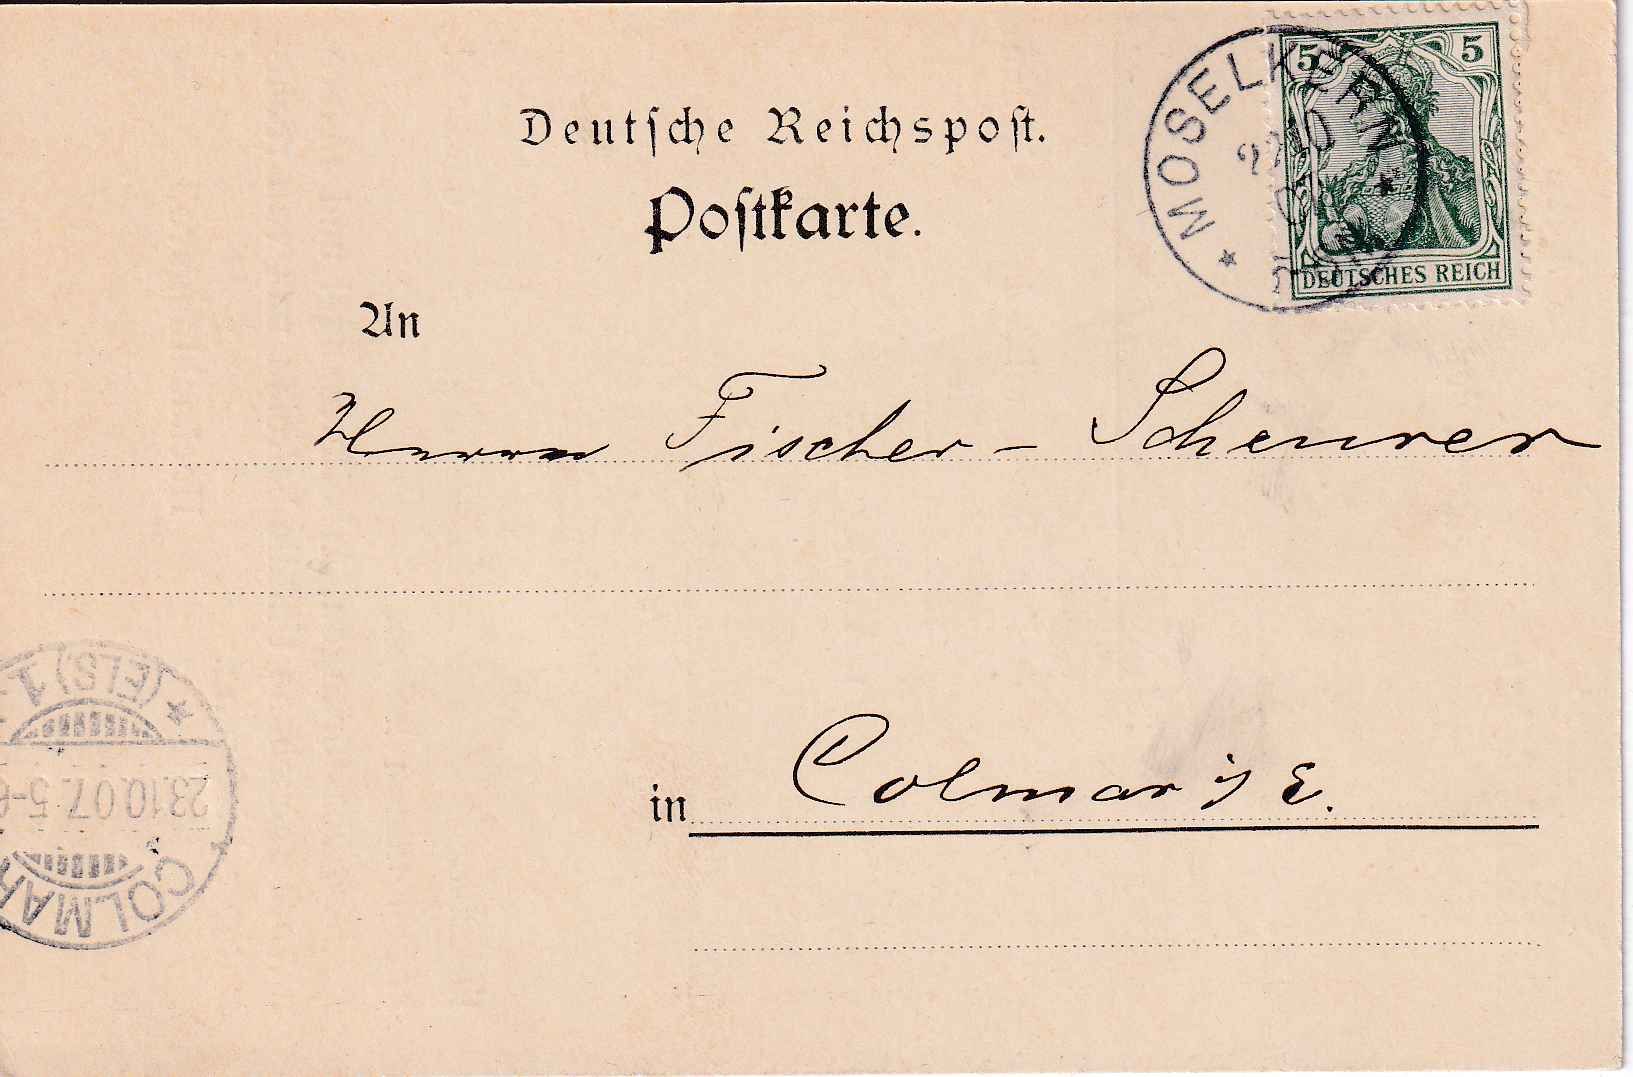 Deutsche Reichspost.
Postkarte.
5 5
DEUTSCHES REICH
* MOSELKERN *
22 10
07
An
Herrn Fischer-Scheurer
in Colmar i/ E.
(ELS) 1 *
23.10.07. 5-6
COLMAR